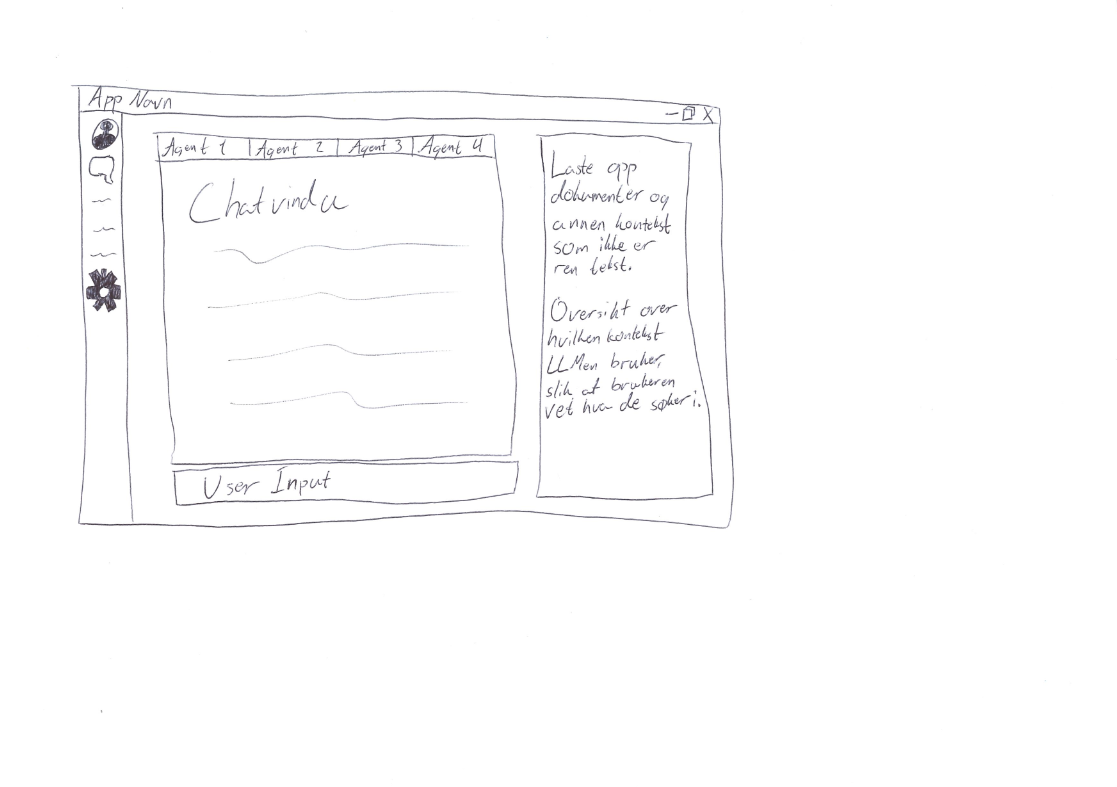 App Navn
Agent 1
Agent 2
Agent 3
Agent 4
Chatvindu
User Input
Laste opp
dokumenter og
annen kontekst
som ikke er
ren tekst.
Oversikt over
hvilken kontekst
LLMen bruker,
slik at brukeren
vet hva de søker i.